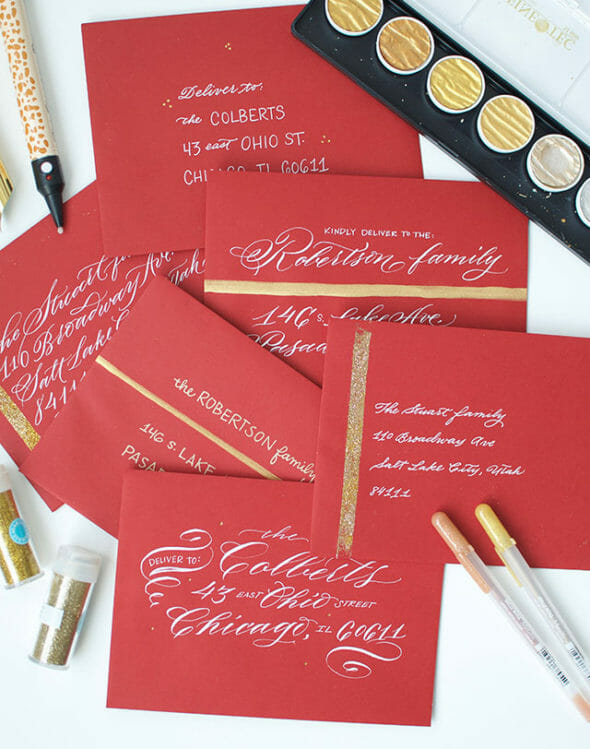 Deliver to:
the COLBERTS
43 east OHIO ST.
CHICAGO, IL 60611
KINDLY DELIVER TO THE:
Robertson family
146 S. Lake Ave.
Pasad
The Stuart fam
110 Broadway Ave.
Salt Lake Utah
84111
the ROBERTSON family
146 S. LAKE
PASAD
The Stuart family
110 Broadway Ave
Salt Lake City, Utah
84111
DELIVER TO:
the
Colberts
43 EAST Ohio STREET
Chicago, IL 60611
FINETEC